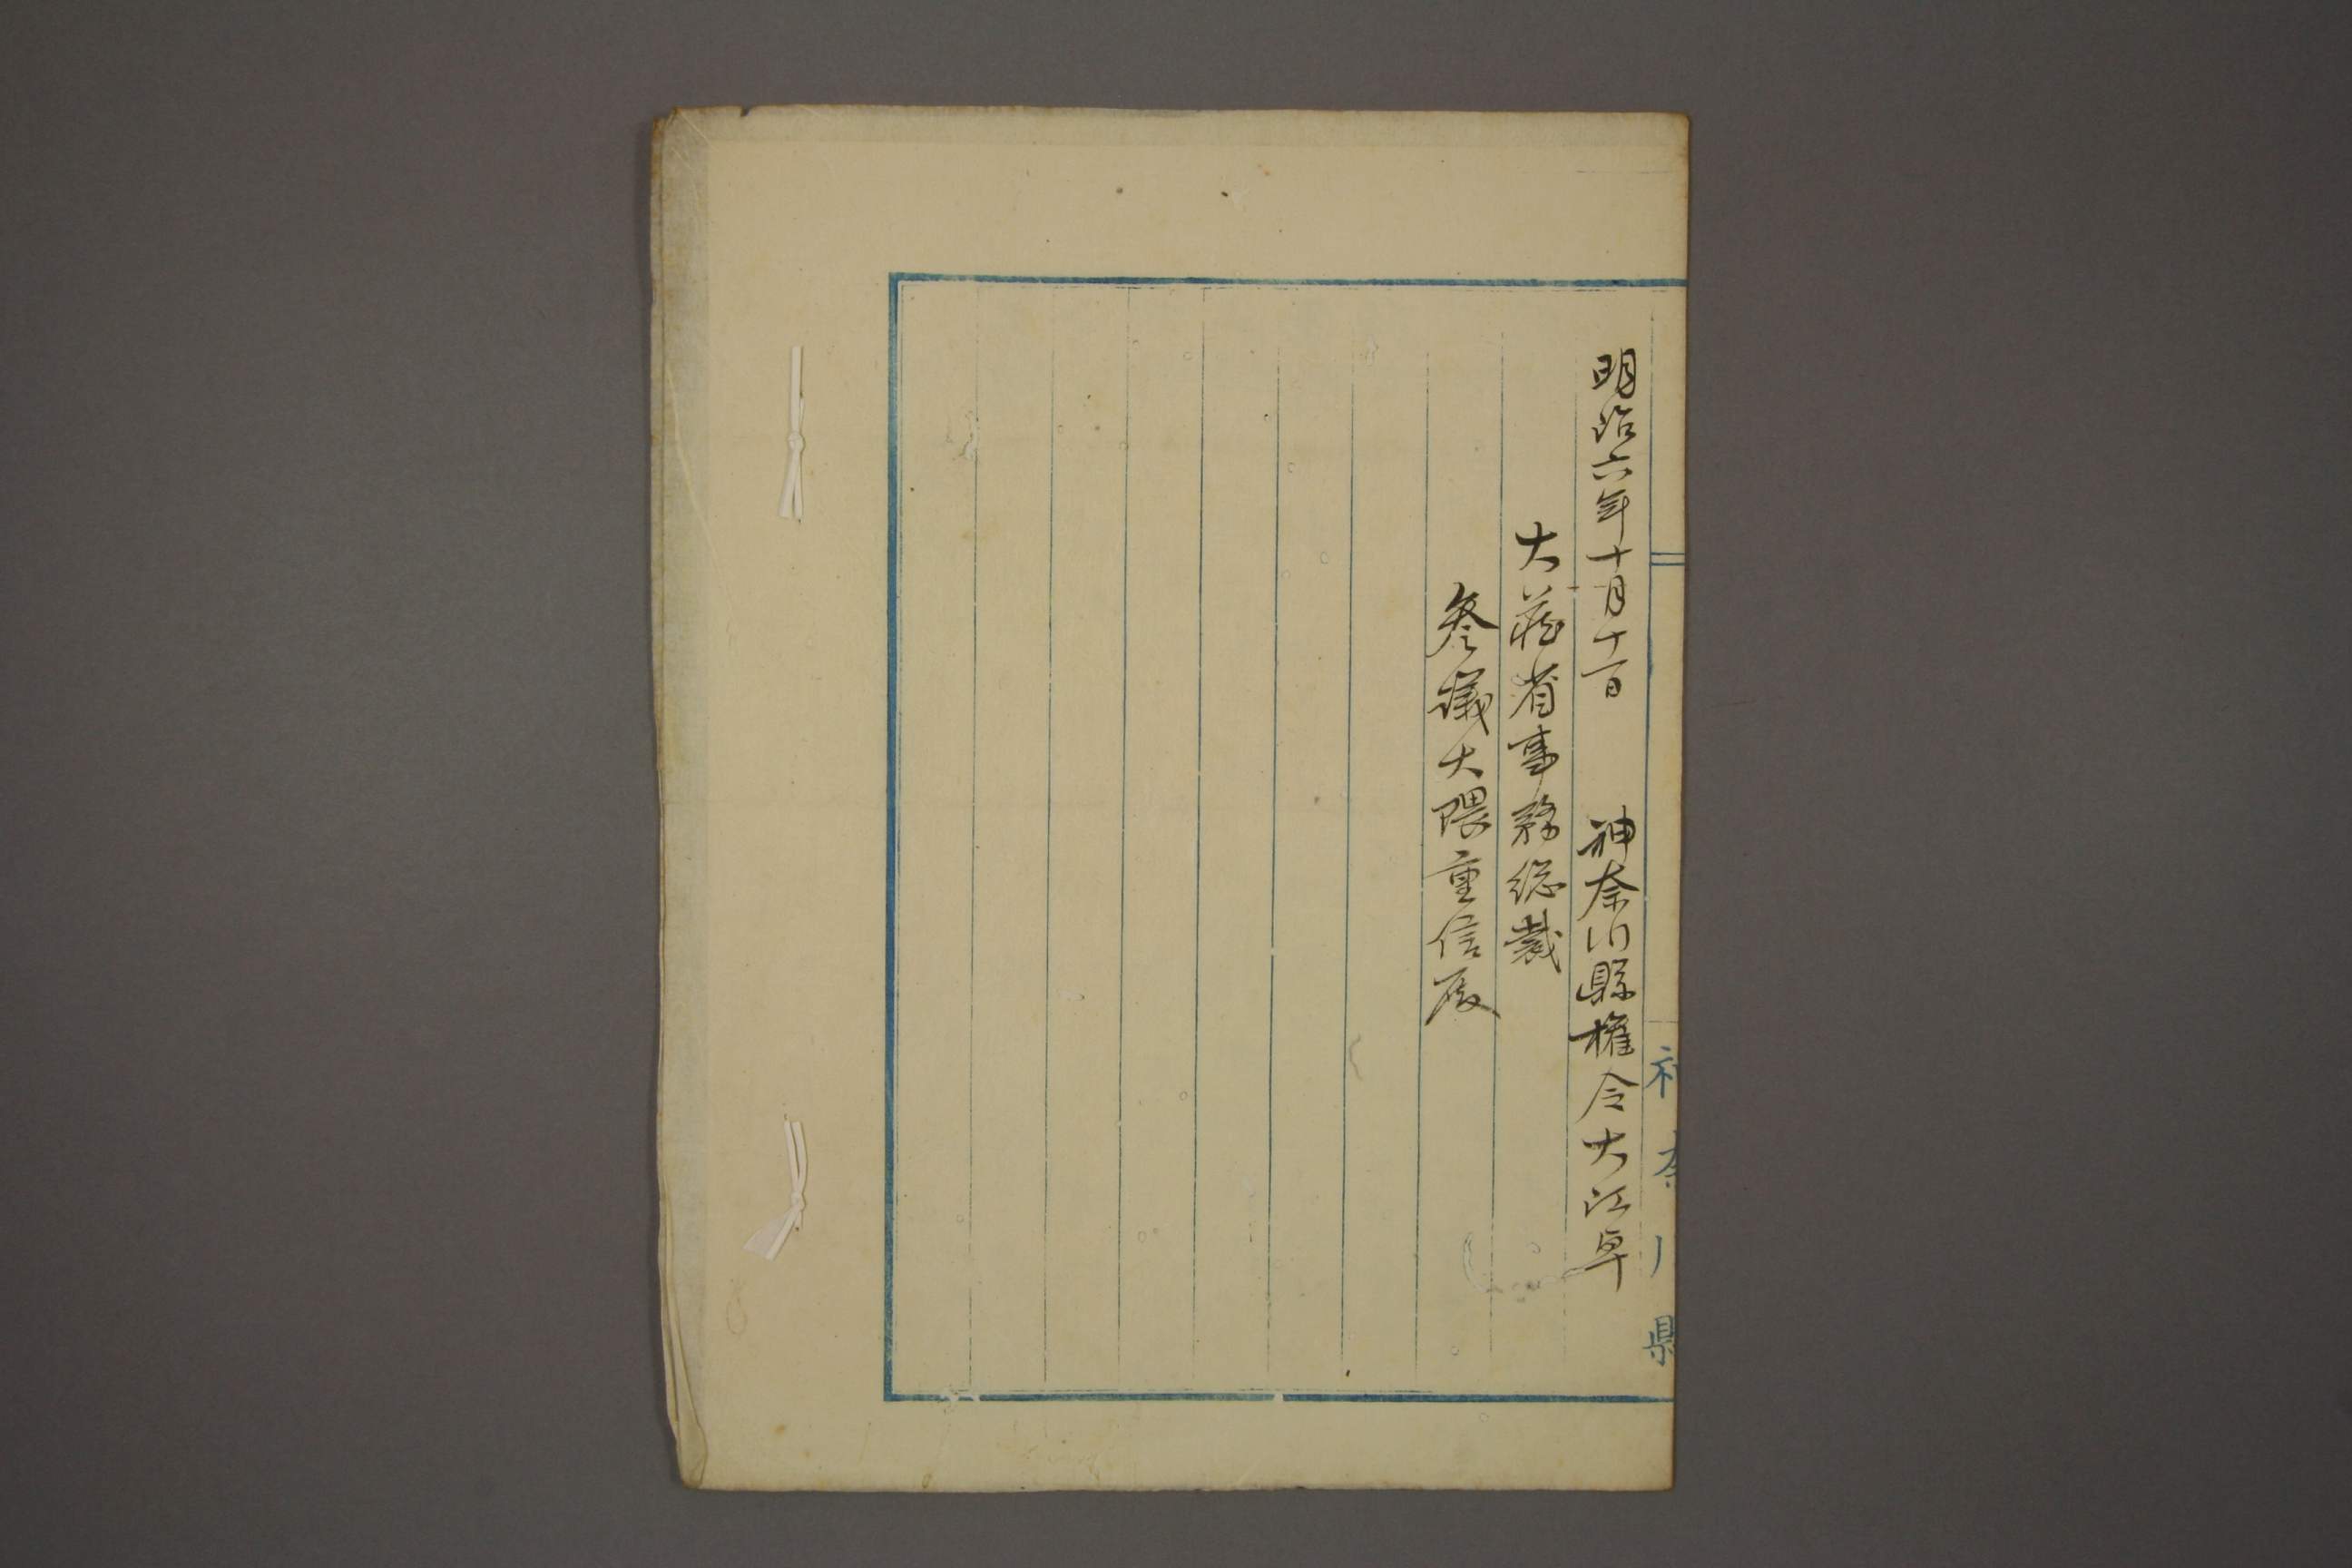 神奈川県
明治六年十月十一日 神奈川縣権令大江卓
大蔵省事務総裁
参議大隈重信殿